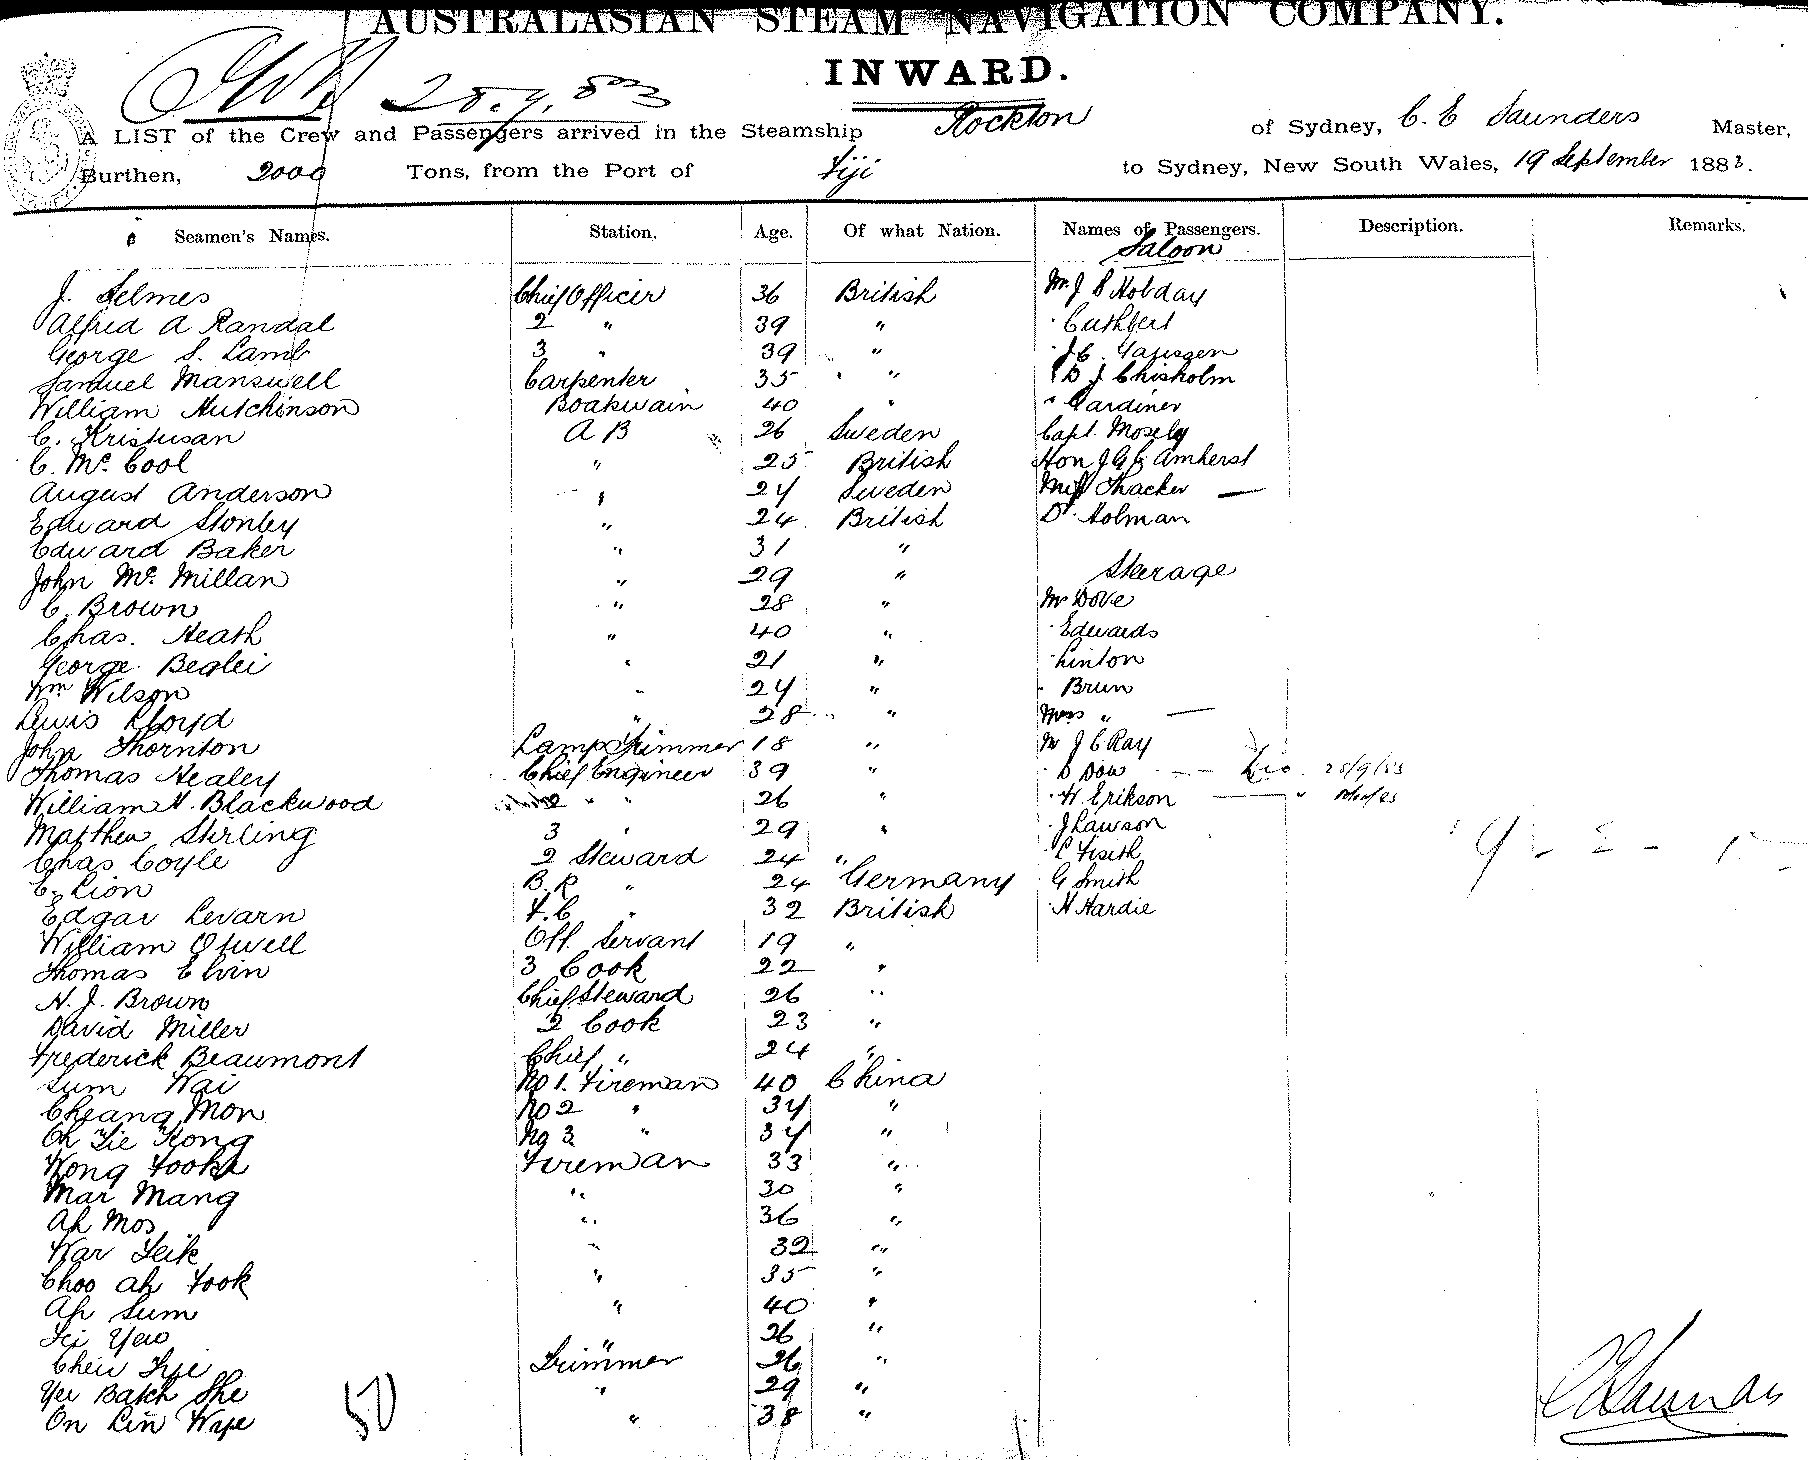 AUSTRALASIAN STEAM NAVIGATION COMPANY.
INWARD.
A LIST of the Crew and Passengers arrived in the Steamship Rockton of Sydney, C. E Saunders Master,
Burthen, 2000 Tons, from the Port of Fiji to Sydney, New South Wales, 19 September 1883.
Seamen's Names. Station. Age. Of what Nation. Names of Passengers. Description. Remarks.
Saloon
J. Selmes Chief Officer 36 British Mr J S Hobday
Alfred A Randal 2 " 39 " Cuthbert
George S. Lamb 3 " 39 " J C.
Samuel Manswell Carpenter 35 " D J Chisholm
William Hutchinson Boatswain 40 " " Gardiner
C. Kristusan A B 26 Sweden Capt. Mosely
C. Mc Cool " 25 British Hon J G Amherst
August Anderson " 24 Sweden Miss Thacker —
Edward Stonley " 24 British Dr Holman
Edward Baker " 31 "
John Mc Millan " 29 " Steerage
C. Brown " 28 " Mr Dove
Chas. Heath " 40 " Edwards
George Beglei " 21 " Linton
Wm Wilson " 24 " Brun
Lewis Lloyd " 28 " Mrs " —
John Thornton Lamp Trimmer 18 " Mr J C Ray
Thomas Healey Chief Engineer 39 " D Dow
William H. Blackwood 2 " " 26 " H. Erikson
Matthew Stirling 3 " 29 " J Lawson
Chas Coyle 2 Steward 24 "
E. Lion B. R " 24 Germany G Smith
Edgar Levarn F. C " 32 British H Hardie
William Otwell Off. Servant 19 "
Thomas Elvin 3 Cook 22 "
H. J. Brown Chief Steward 26 "
David Miller 2 Cook 23 "
Frederick Beaumont Chief " 24 "
Sum Wai No 1. Fireman 40 China
Cheang Mon No 2 " 34 "
Ah Tie Kong No 3 " 34 "
Wong Fook Fireman 33 "
Mar Mang " 30 "
Ah Mos " 36 "
War Leik " 32 "
Choo Ah Fook " 35 "
Ah Sum " 40 "
Yaw " 26 "
Trimmer 26 "
Yee Batch She " 29 "
On Lin " 38 "
50